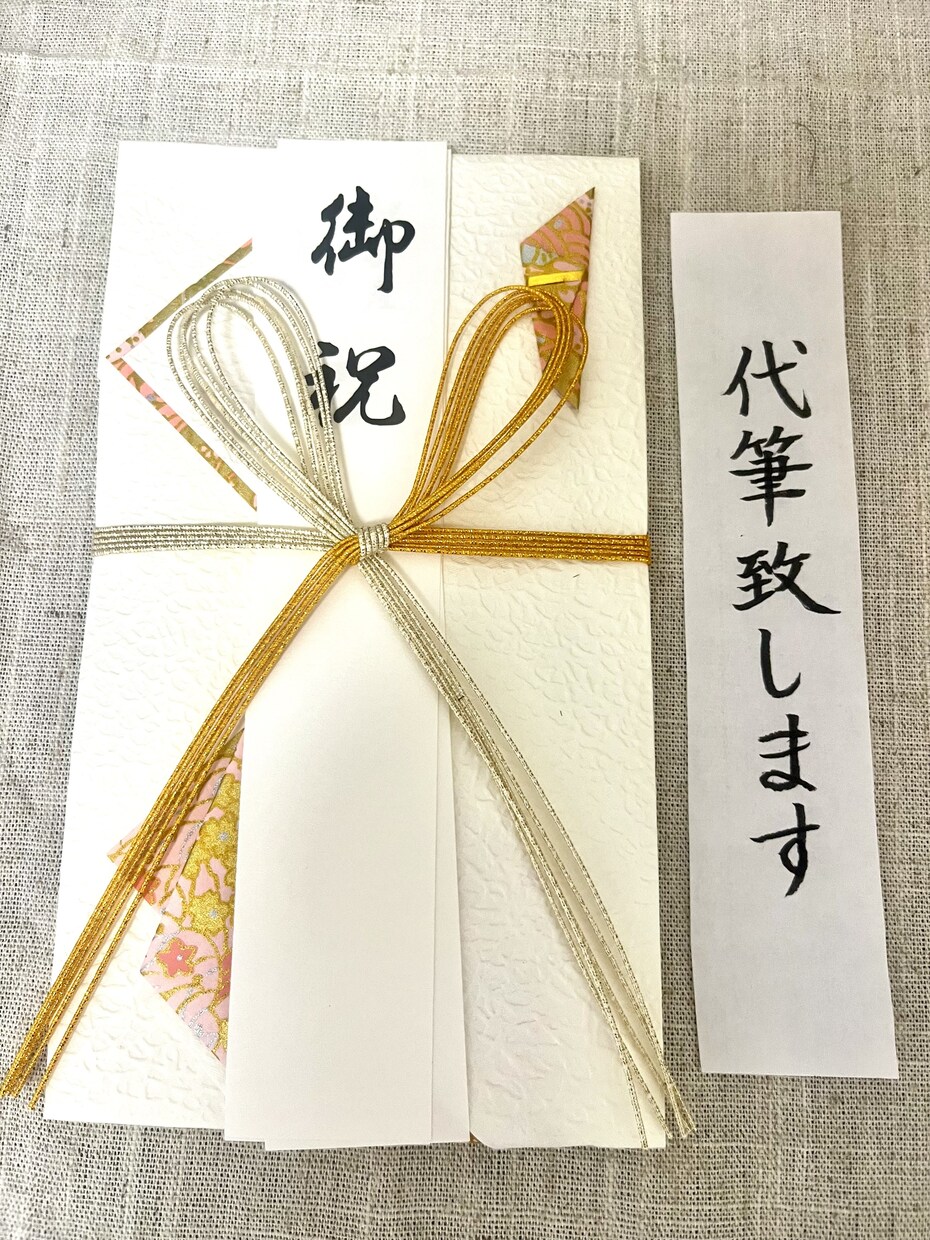 御祝
代筆致します